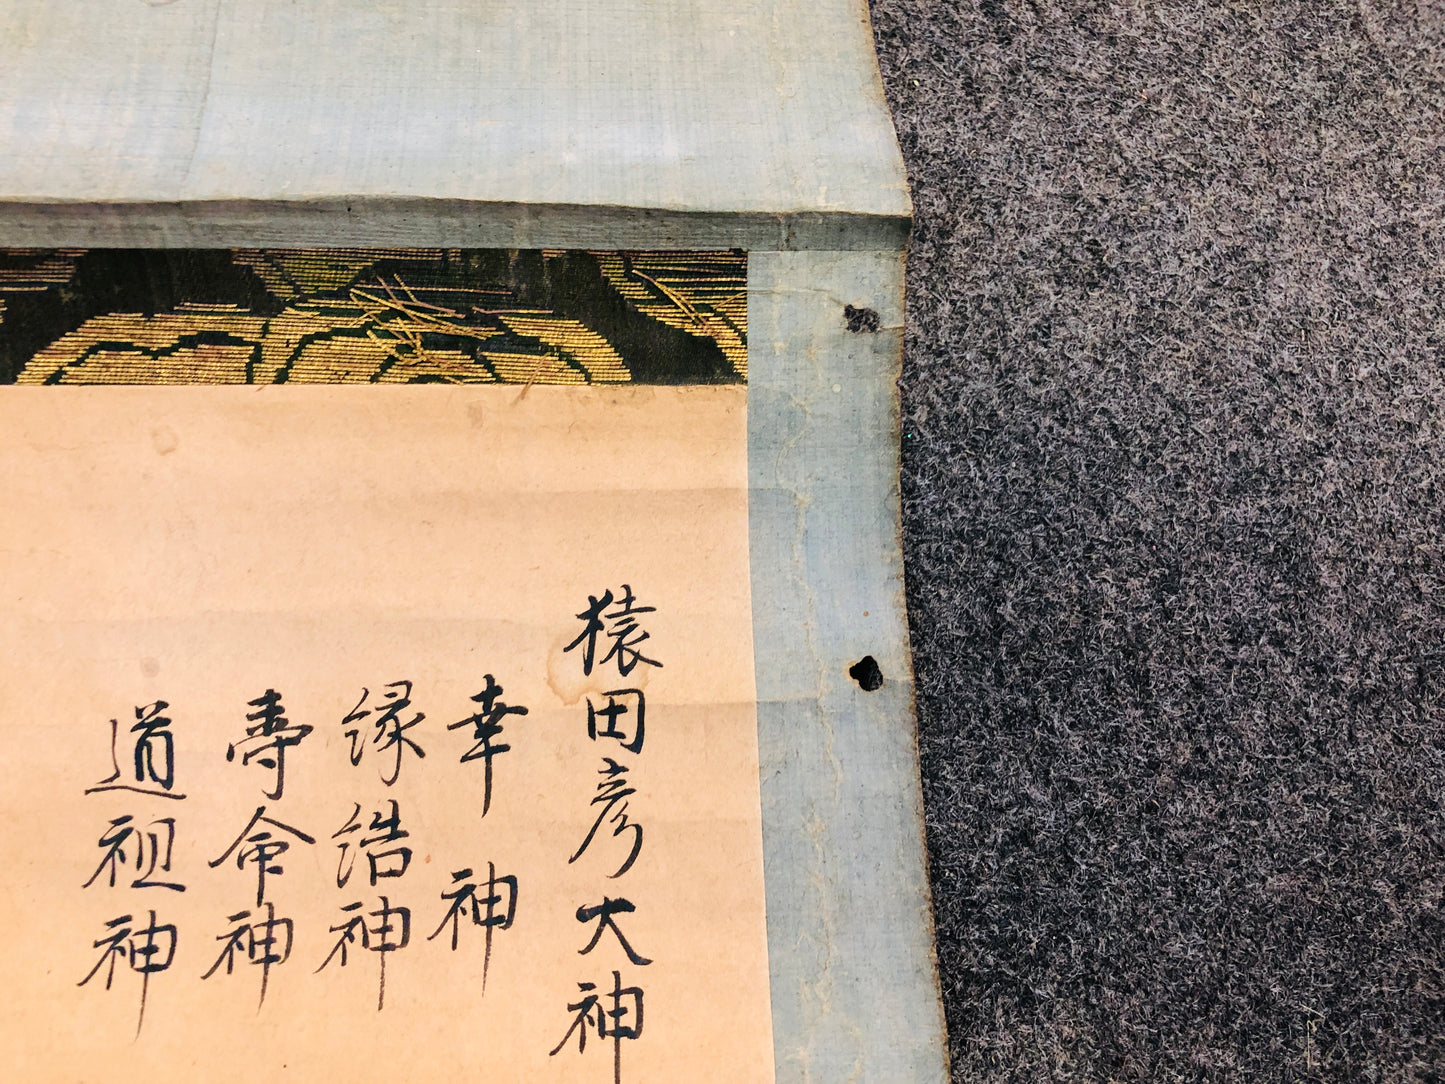 猿田彦大神
幸神
縁結神
寿命神
道祖神